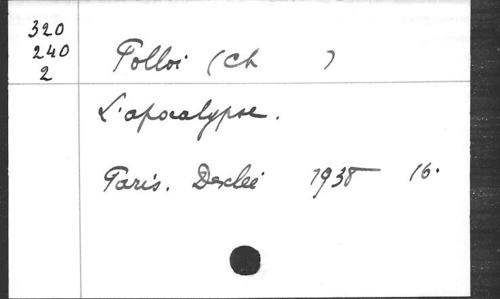 320
240
2
Polloi (Ch )
L'apocalypse.
Paris. Desclée 1938 16.